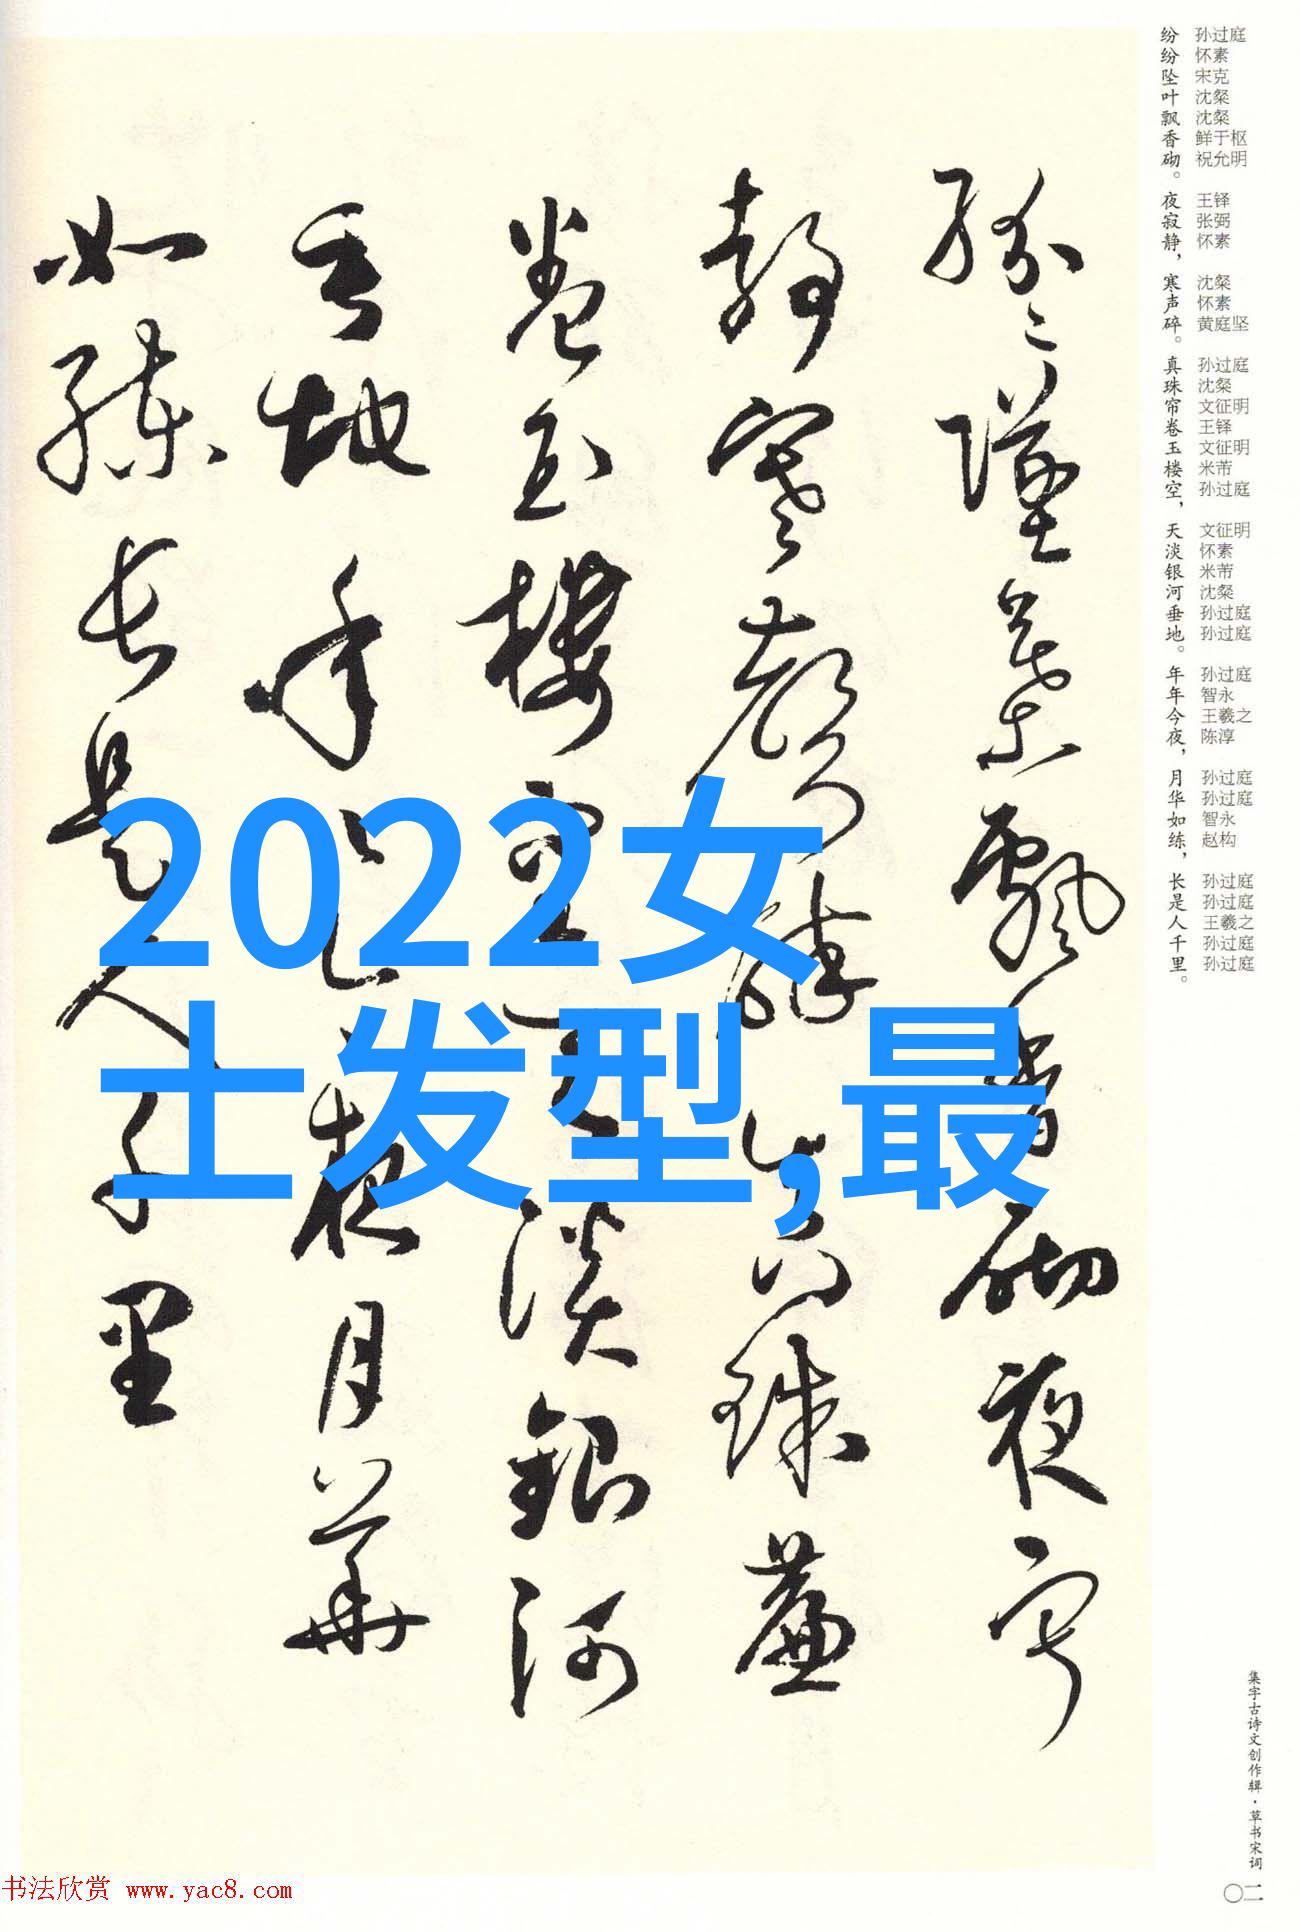 纷纷坠叶飘香砌。夜寂静，寒声碎。真珠帘卷玉楼空，天淡银河垂地。年年今夜，月华如练，长是人千里。
孙过庭 怀素 宋克 沈粲 沈粲 鲜于枢 祝允明 王铎 张弼 怀素 沈粲 怀素 黄庭坚 孙过庭 沈粲 文征明 王铎 文征明 米芾 孙过庭 文征明 怀素 米芾 沈粲 孙过庭 孙过庭 孙过庭 智永 王羲之 陈淳 孙过庭 孙过庭 智永 赵构 孙过庭 孙过庭 王羲之 孙过庭 孙过庭
纷纷坠葉飘香砌夜寂
静寒聲碎真珠簾
卷玉樓空天淡銀河
垂地年年今夜月華
如練长是人千里
2022女
士发型,最
集字古诗文创作辑·草书宋词
〇二
书法欣赏 www.yac8.com